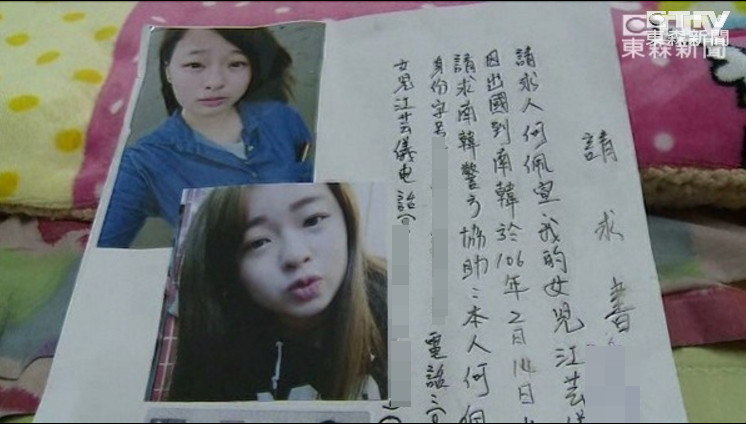 東森新聞
東森新聞
請求書
請求人何佩宣我的女兒江芸
因出國到南韓於106年2月14日
請求南韓警方協助:本人何佩
身份字号 電話
女兒江芸儀电話